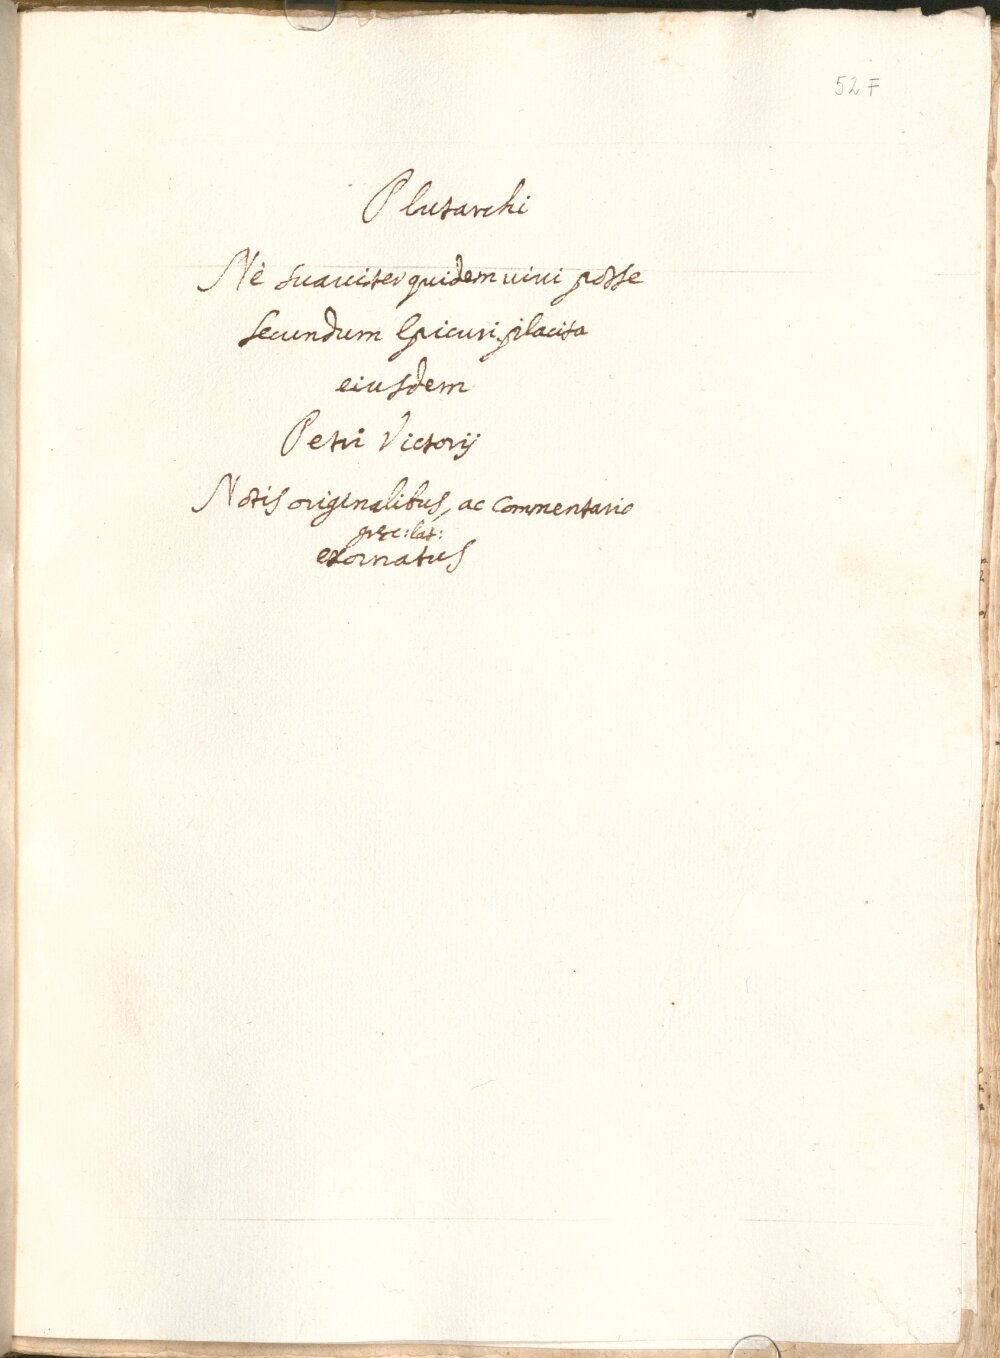 52 F
Plutarchi
Nè suauiter quidem uiui posse
secundum Epicuri placita
eiusdem
Petri Victorij
Notis originalibus, ac Commentario
grec: lat:
exornatus